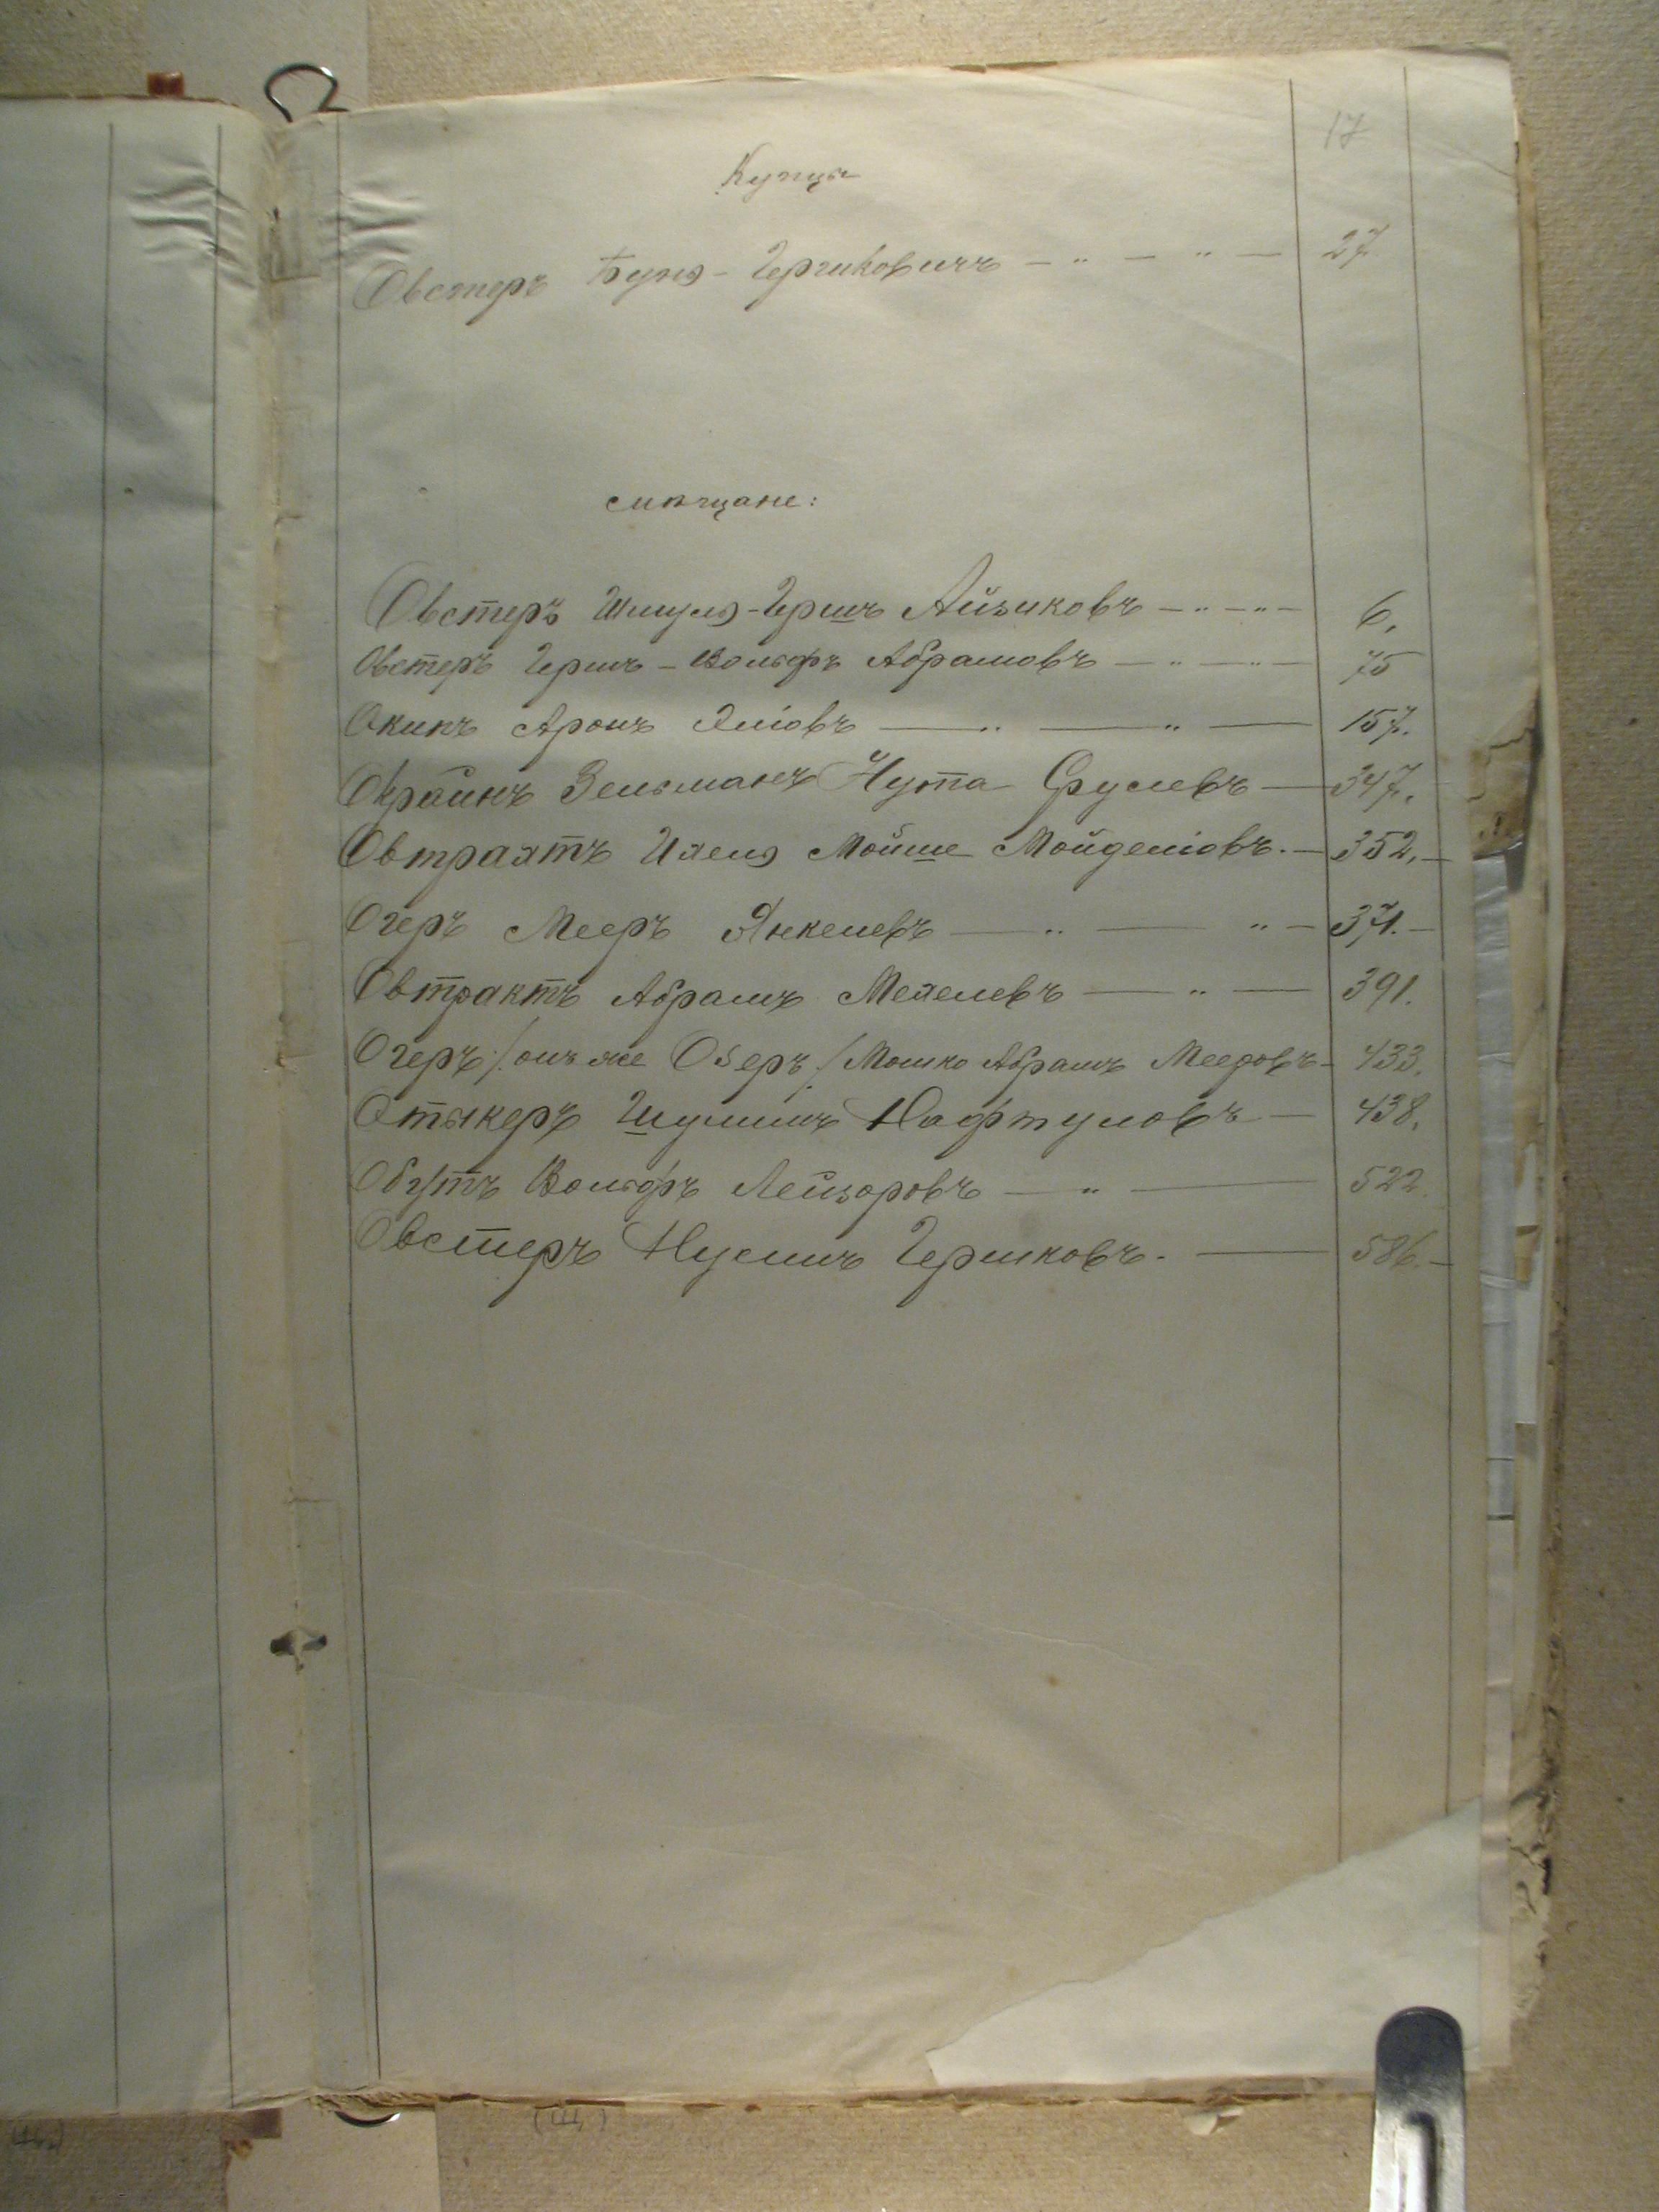 17
Купцы
Овстеръ Буня-Гершковичъ — " — " — 27.
мѣщане:
Овстеръ Шмуля-Гершъ Айзиковъ — " — " — 6.
Овстеръ Гершъ-Вольфъ Абрамовъ — " — " — 75
Окипъ Аронъ Эліовъ — " — " — 157.
Окрайнъ Зельманъ Нута Срулевъ — 347.
Овтрахтъ Ихель Мойше Мойделіовъ. — 352. —
Очеръ Мееръ Янкелевъ — " — " — 371. —
Овтрахтъ Абрамъ Мехелевъ — " — 391.
Очеръ /онъ же Озеръ/ Мошко Абрамъ Мееровъ — 433.
Отыкеръ Шулимъ Нафтуловъ — 438.
Вольфъ Лейзоровъ — " — 522.
Овстеръ Нусинъ Гершковъ. — 586. —